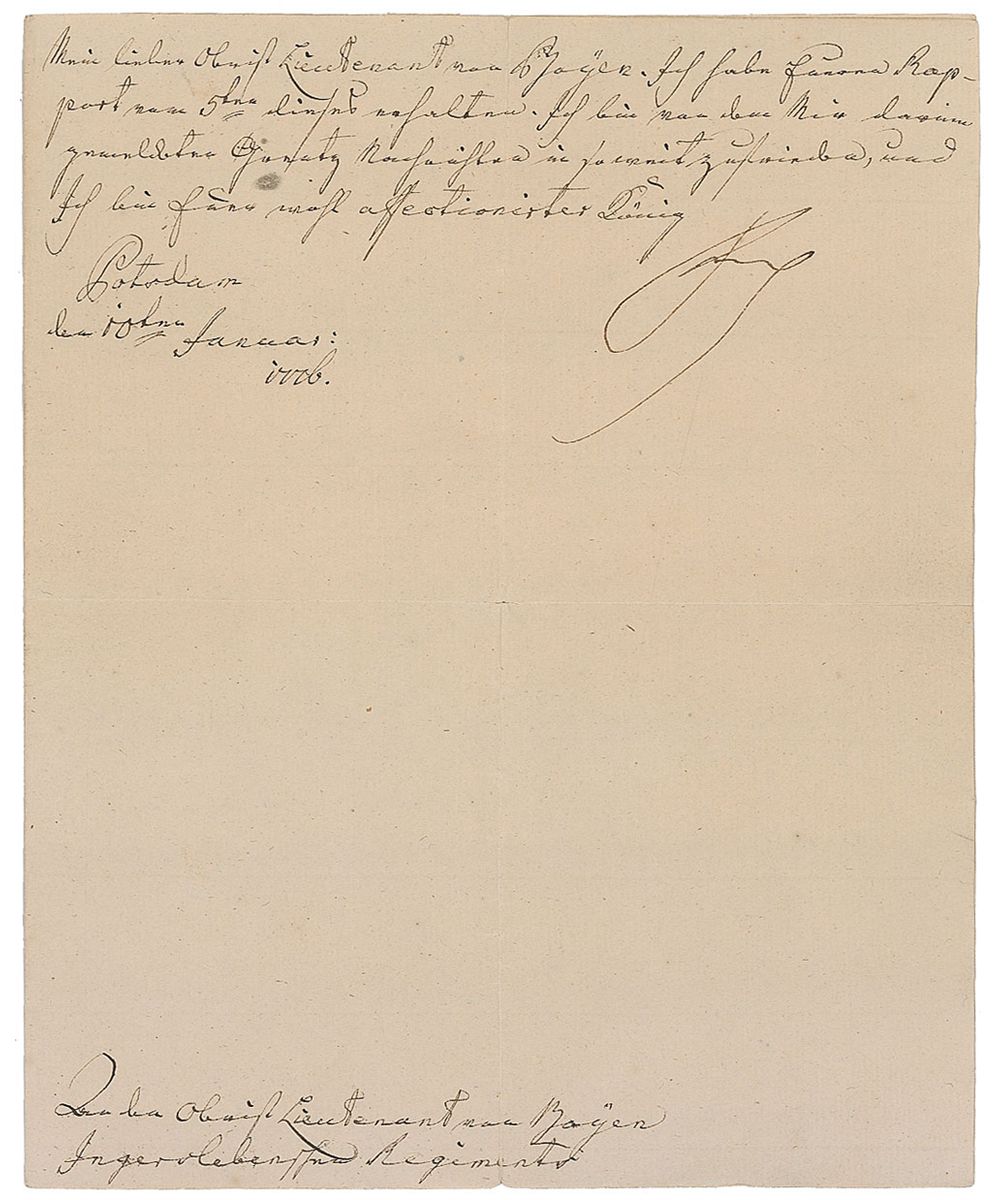 Mein lieber Obrist Lieutenant von Boÿen. Ich habe Eueren Rap-
port vom 5ten dieses erhalten. Ich bin von den Mir darinn
gemeldeten Grentz Nachrichten in so weit zufrieden, und
Ich bin Euer wohl affectionirter König
Potsdam
den 10ten Januar:
1776.
An den Obrist Lieutenant von Boÿen
Ingerslebenschen Regiments